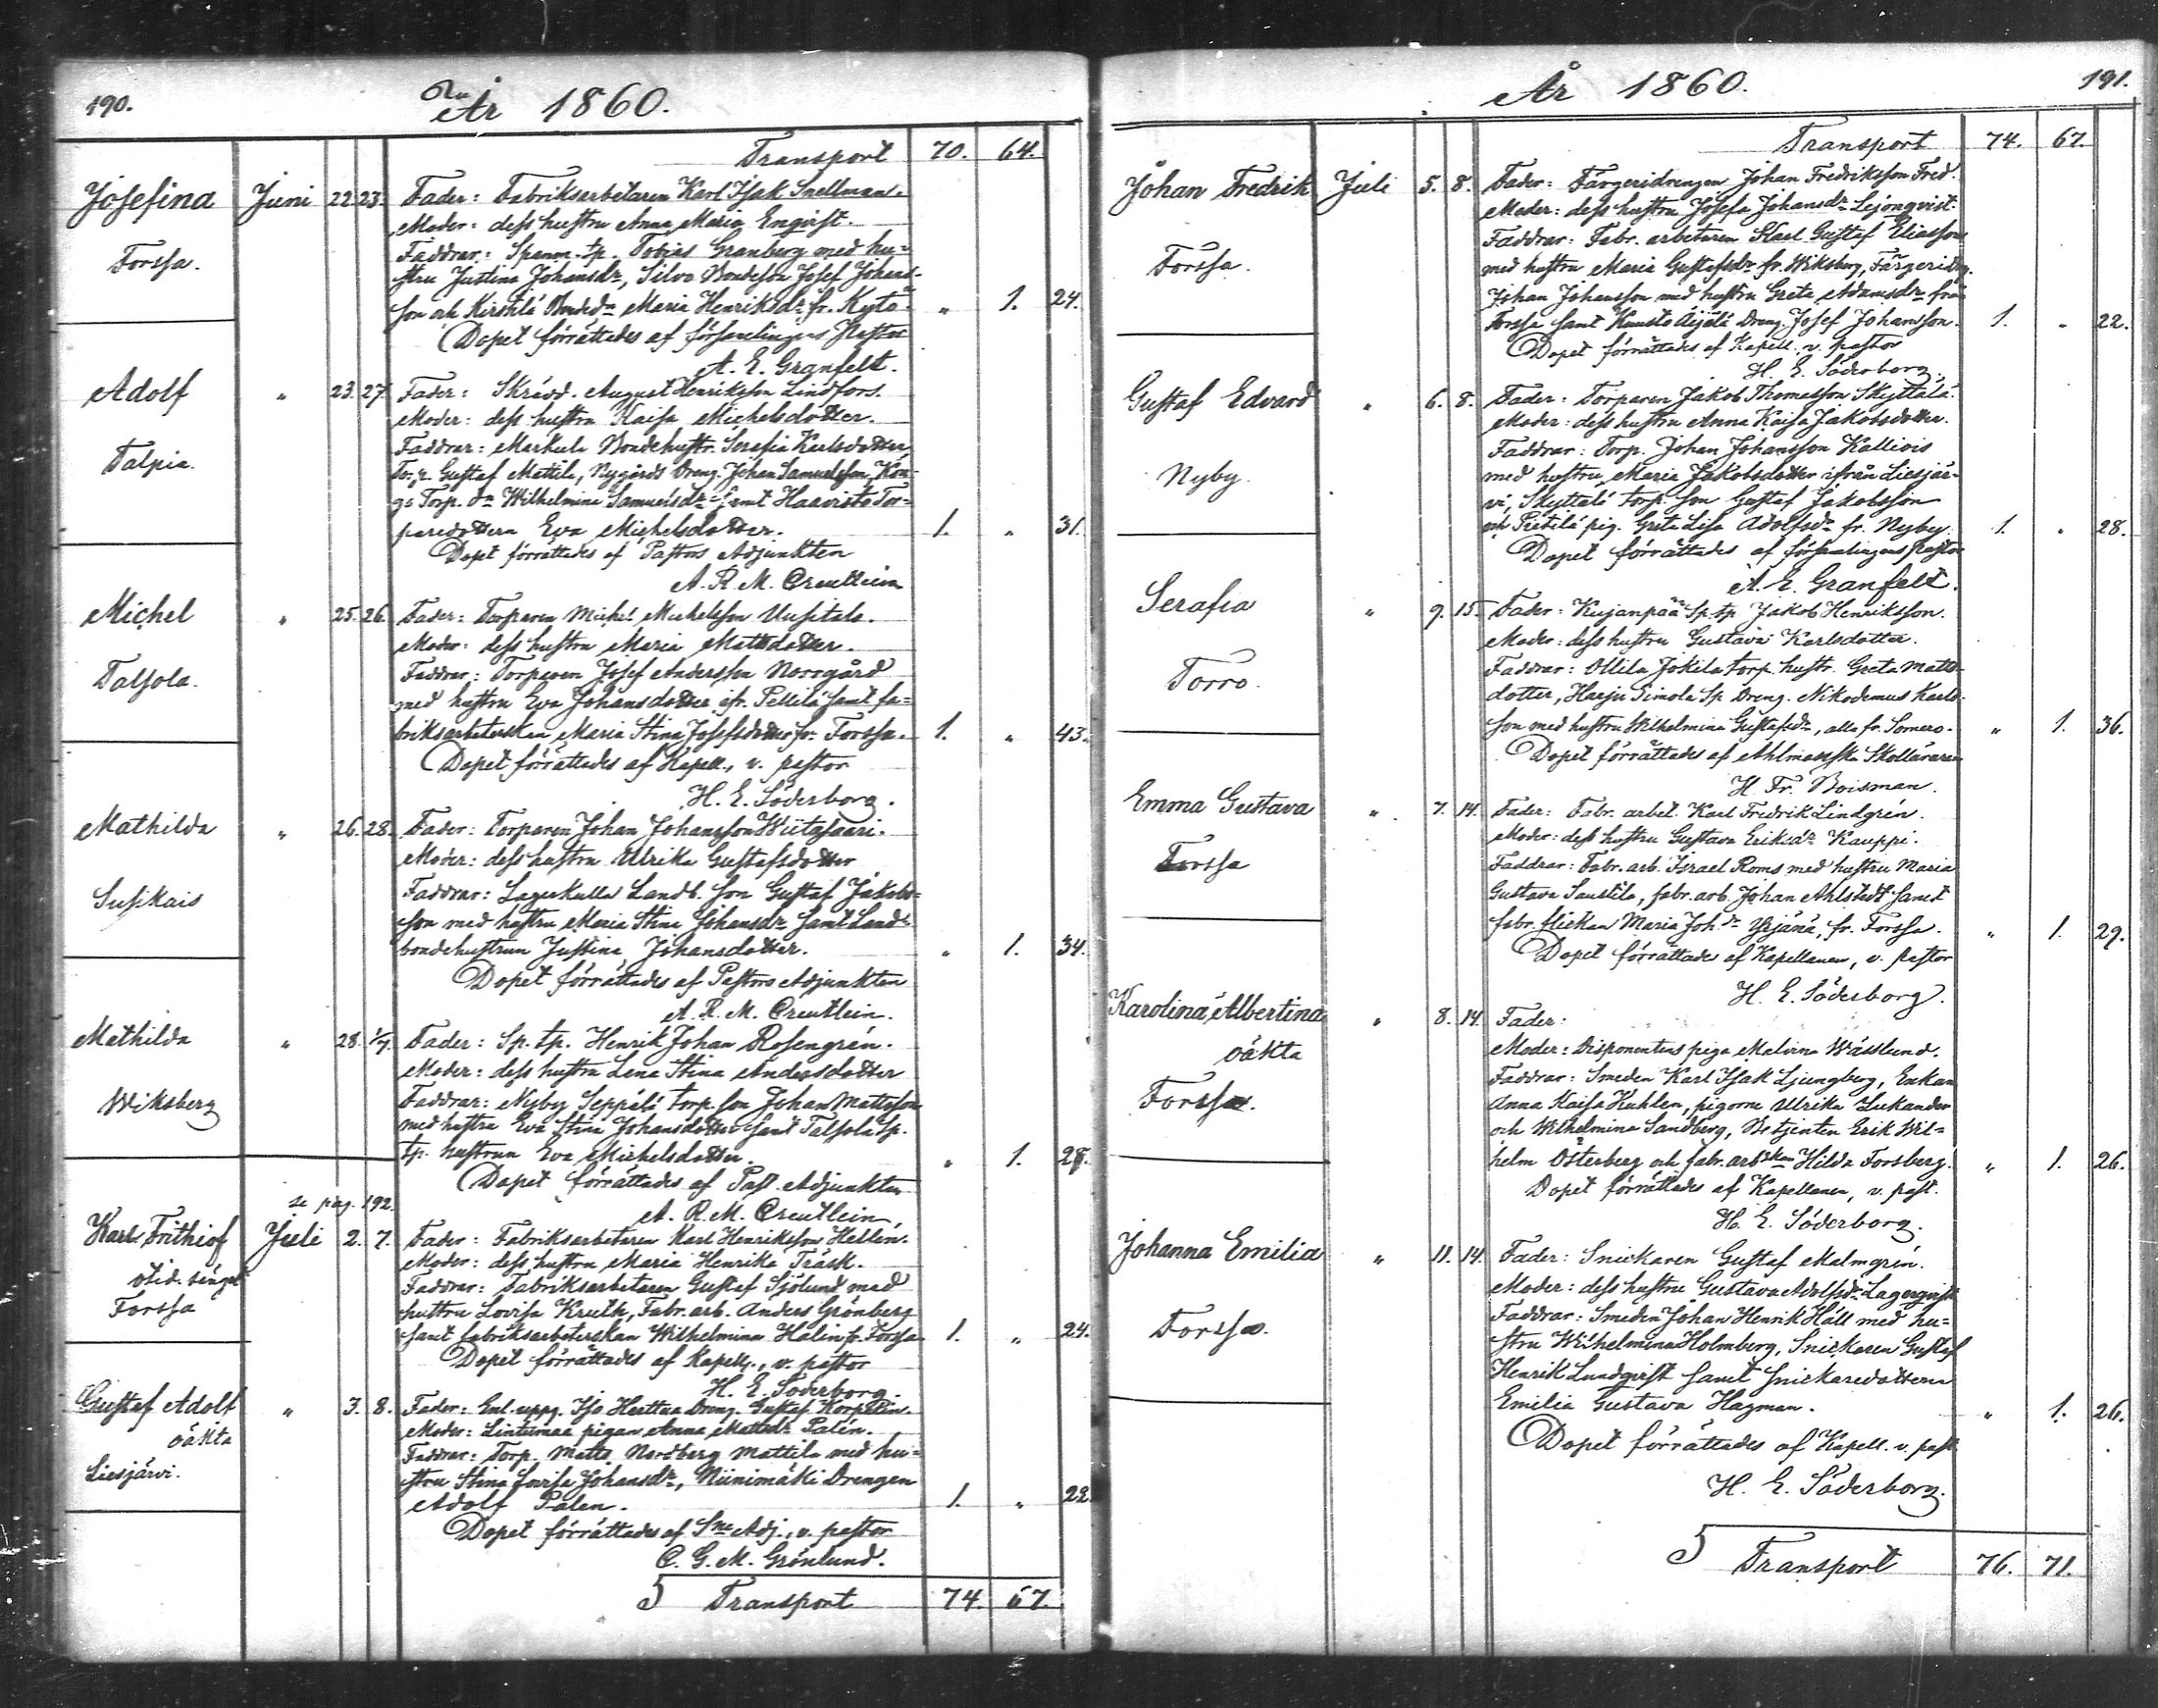 190.
År 1860.
Transport 70. 64.
Josefina Juni 22. 23. Fader: Fabriksarbetaren Karl Isak Snellman.
Moder: dess hustru Anna Maria Engvist.
Forssa. Faddrar: Spanm. tp. Tobias Granberg med hu-
stru Justina Johansdr, Silvo Bondeson Josef Johans-
son och Kirstilä Maria Henriksdr fr. Kojo. " 1. 24.
Dopet förrättades af församlingens Pastor
A. E. Granfelt.
Adolf " 23. 27. Fader: Skrädd. August Henriksson Lindfors.
Moder: dess hustru Kaisa Michelsdotter.
Talpia. Faddrar: Markula Bondehustr. Serafia Karlsdotter,
Torp. Gustaf Mattila, Nygårds Dreng. Johan Samuelsson, Kon-
gs Torp. dr Wilhelmina Samuelsdr samt Haavisto Tor-
paredottern Eva Michelsdotter. 1. " 31.
Dopet förrättades af Pastors Adjunkten
A. R. M. Creutlein
Michel " 25. 26. Fader: Torparen Michel Michelsson Uusitalo.
Moder: dess hustru Maria Mattsdotter.
Talsola. Faddrar: Torparen Josef Andersson Norrgård
med hustru Eva Johansdotter ifr. Pellilä samt fa-
briksarbeterskan Maria Stina Josefsdotter fr. Forssa. 1. " 43.
Dopet förrättades af Kapell., v. pastor
H. E. Söderborg.
Mathilda " 26. 28. Fader: Torparen Johan Johansson Wiitasaari.
Moder: dess hustru Ulrika Gustafsdotter
Susikais Faddrar: Lagerkulla Landb. son Gustaf Jakobs-
son med hustru Maria Stina Johansdr samt Land-
bondehustrun Justina Johansdotter. " 1. 34.
Dopet förrättades af Pastors Adjunkten
A. R. M. Creutlein.
Mathilda " 28. 1/7. Fader: Sp. tp. Henrik Johan Rosengrén.
Moder: dess hustru Lena Stina Andersdotter
Wiksberg Faddrar: Nyby Seppälä torp. son Johan Mattsson
med hustru Eva Stina Johansdotter samt Talsola Sp.
tp. hustrun Eva Michelsdotter. " 1. 28.
Dopet förrättades af Past. Adjunkten
se pag. 192.
A. R. M. Creutlein,
Karl Frithiof Juli 2. 7. Fader: Fabriksarbetaren Karl Henriksson Hellén.
Moder: dess hustru Maria Henrika Träsk.
Forssa Faddrar: Fabriksarbetaren Gustaf Sjölund med
hustru Lovisa Kruth, Fabr. arb. Anders Grönberg
samt fabriksarbeterskan Wilhelmina Halin fr. Forssa 1. " 24.
Dopet förrättades af Kapell., v. pastor
H. E. Söderborg.
Gustaf Adolf " 3. 8. Fader: Enl. uppg. Iso Herttua Dreng. Gustaf Korpelin.
oäkta Moder: Lintumaa pigan Anna Mattsdr Palén.
Liesjärvi. Faddrar: Torp. Matts Nordberg Mattila med hu-
stru Stina Lovisa Johansdr, Niinimäki Drengen
Adolf Palen. 1. " 22.
Dopet förrättades af Sne Adj., v. pastor
C. G. M. Grönlund.
5 Transport 74. 67.
År 1860. 191.
Transport 74. 67.
Johan Fredrik Juli 5. 8. Fader: Färgeridrengen Johan Fredriksson Fred.
Moder: dess hustru Josefa Johansdr Lejonqvist.
Forssa. Faddrar: Fabr. arbetaren Karl Gustaf Eliasson
med hustru Maria Gustafsdr fr. Wiksberg, Färgeridrg.
Johan Johansson med hustru Greta Adamsdr från
Forssa samt Kuusto Äijälä Dreng. Josef Johansson. 1. " 22.
Dopet förrättades af Kapell. v. pastor
H. E. Söderborg.
Gustaf Edvard " 6. 8. Fader: Torparen Jakob Thomasson Skyttälä.
Moder: dess hustru Anna Kaisa Jakobsdotter.
Nyby. Faddrar: Torp. Johan Johansson Kalliois
med hustru Maria Jakobsdotter ifrån Liesjär-
vi, Skyttälä torp. son Gustaf Jakobsson
och Pietilä pig. Greta Lisa Adolfsdr fr. Nyby. 1. " 28.
Dopet förrättades af församlingens pastor
A. E. Granfelt.
Serafia " 9. 15. Fader: Kujanpää Sp. tp. Jakob Henriksson.
Moder: dess hustru Gustava Karlsdotter.
Torro. Faddrar: Ollila Jokila torp. hustr. Greta Matts-
dotter, Harju Simola Sp. Dreng. Nikodemus Karls-
son med hustru Wilhelmina Gustafsdr, alla fr. Somero. " 1. 36.
Dopet förrättades af Ahlmanska Skolläraren
H. Fr. Boisman.
Emma Gustava " 7. 14. Fader: Fabr. arbet. Karl Fredrik Lindgrén.
Moder: dess hustru Gustava Eriksdr Kauppi.
Forssa Faddrar: Fabr. arb. Israel Roms med hustru Maria
Gustava Saustila, fabr. arb. Johan Ahlstedt samt
fabr. flickan Maria Joh.dr Yrjänä, fr. Forssa. " 1. 29.
Dopet förrättades af Kapellanen, v. pastor
H. E. Söderborg.
Karolina Albertina " 8. 14. Fader:
oäkta Moder: Disponentens piga Malvina Wässlund.
Forssa. Faddrar: Smeden Karl Isak Ljungberg, Enkan
Anna Kaisa Kuhlen, pigorne Ulrika Lukander
och Wilhelmina Sandberg, Betjenten Erik Wil-
helm Österberg och fabr. arb.skan Hilda Forsberg. " 1. 26.
Dopet förrättades af Kapellanen, v. past.
H. E. Söderborg.
Johanna Emilia " 11. 14. Fader: Snickaren Gustaf Malmgrén.
Moder: dess hustru Gustava Adolfsdr Lagerqvist
Forssa. Faddrar: Smeden Johan Henrik Häll med hu-
stru Wilhelmina Holmberg, Snickaren Gustaf
Henrik Lundqvist samt snickaredottern
Emilia Gustava Hagman. " 1. 26.
Dopet förrättades af Kapell. v. past.
H. E. Söderborg.
5 Transport 76. 71.